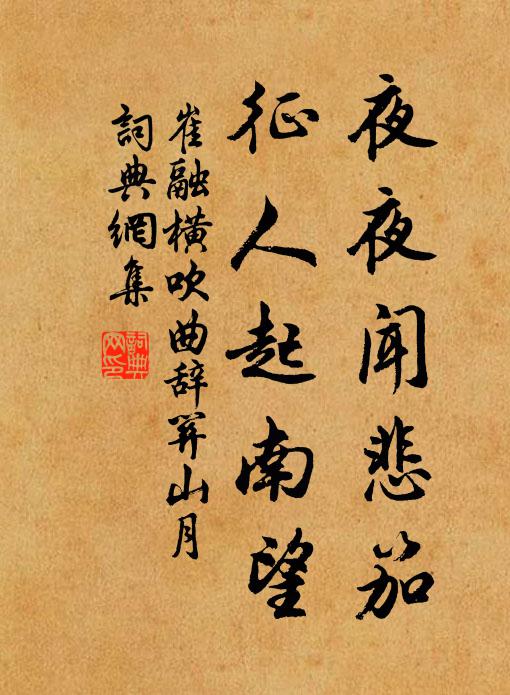 夜夜闻悲笳
征人起南望
崔融横吹曲辞关山月
詞典網集
詞典
网印